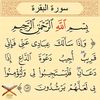 سورة البقرة
بِسْمِ اللَّهِ الرَّحْمَٰنِ الرَّحِيمِ
وَإِذَا سَأَلَكَ عِبَادِي عَنِّي فَإِنِّي
قَرِيبٌ أُجِيبُ دَعْوَةَ الدَّاعِ إِذَا
دَعَانِ فَلْيَسْتَجِيبُوا لِي وَلْيُؤْمِنُوا
بِي لَعَلَّهُمْ يَرْشُدُونَ